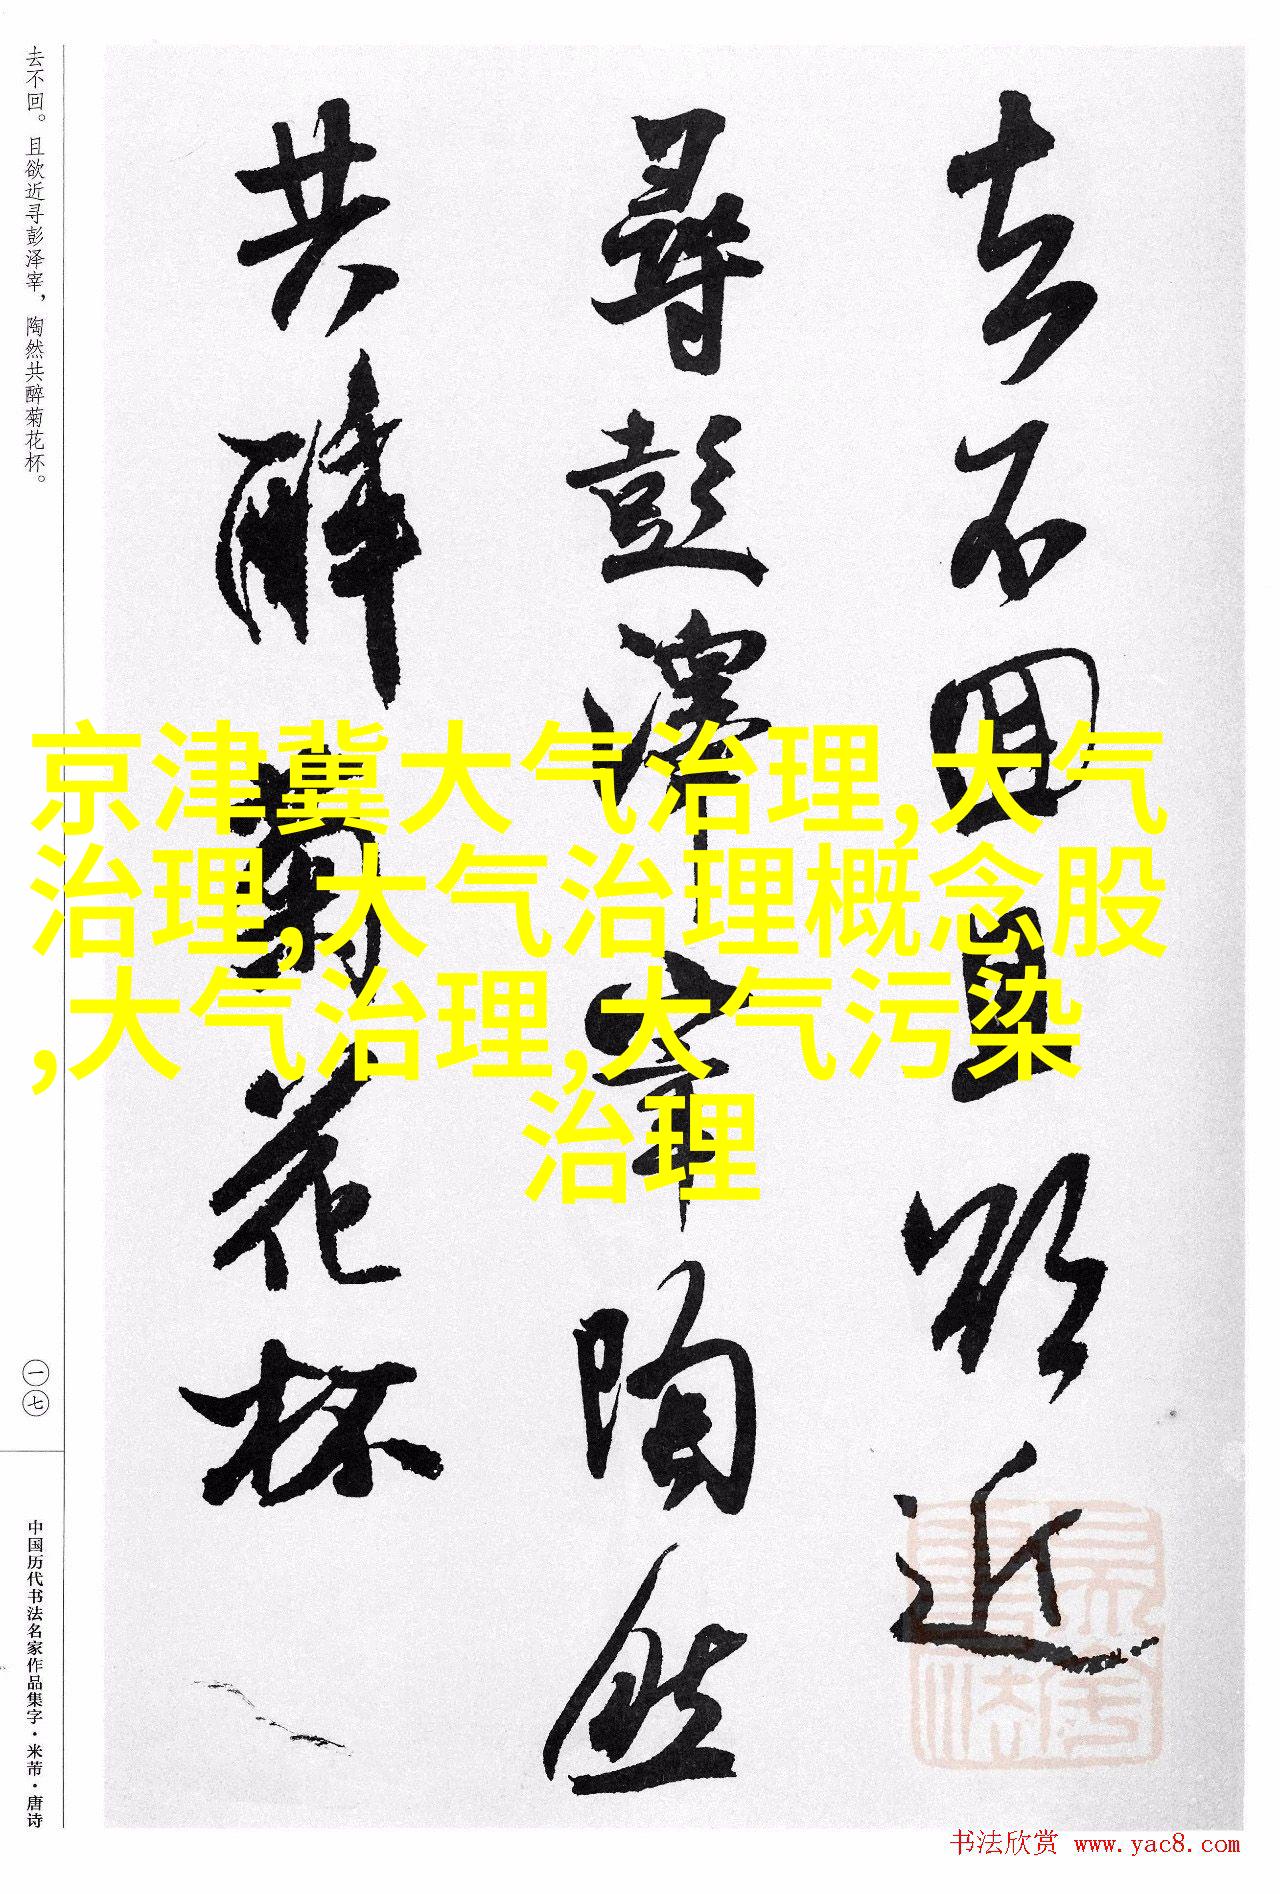 去不回且欲近
尋彭澤宰陶然
共醉菊花杯
去不回。且欲近寻彭泽宰，陶然共醉菊花杯。
一七
中国历代书法名家作品集字·米芾·唐诗
京津冀大气治理,大气
治理,大气治理概念股
,大气治理,大气污染
治理
书法欣赏 www.yac8.com